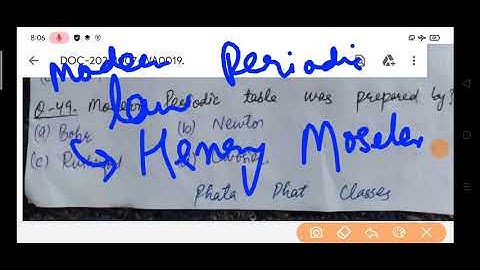 8:06
DOC-202
A0019.
Modern Periodic
law
Q-49. Modern Periodic table was prepared by?
(a) Bohr (b) Newton
→ Henry Moseley
(c)
Phata Phat Classes